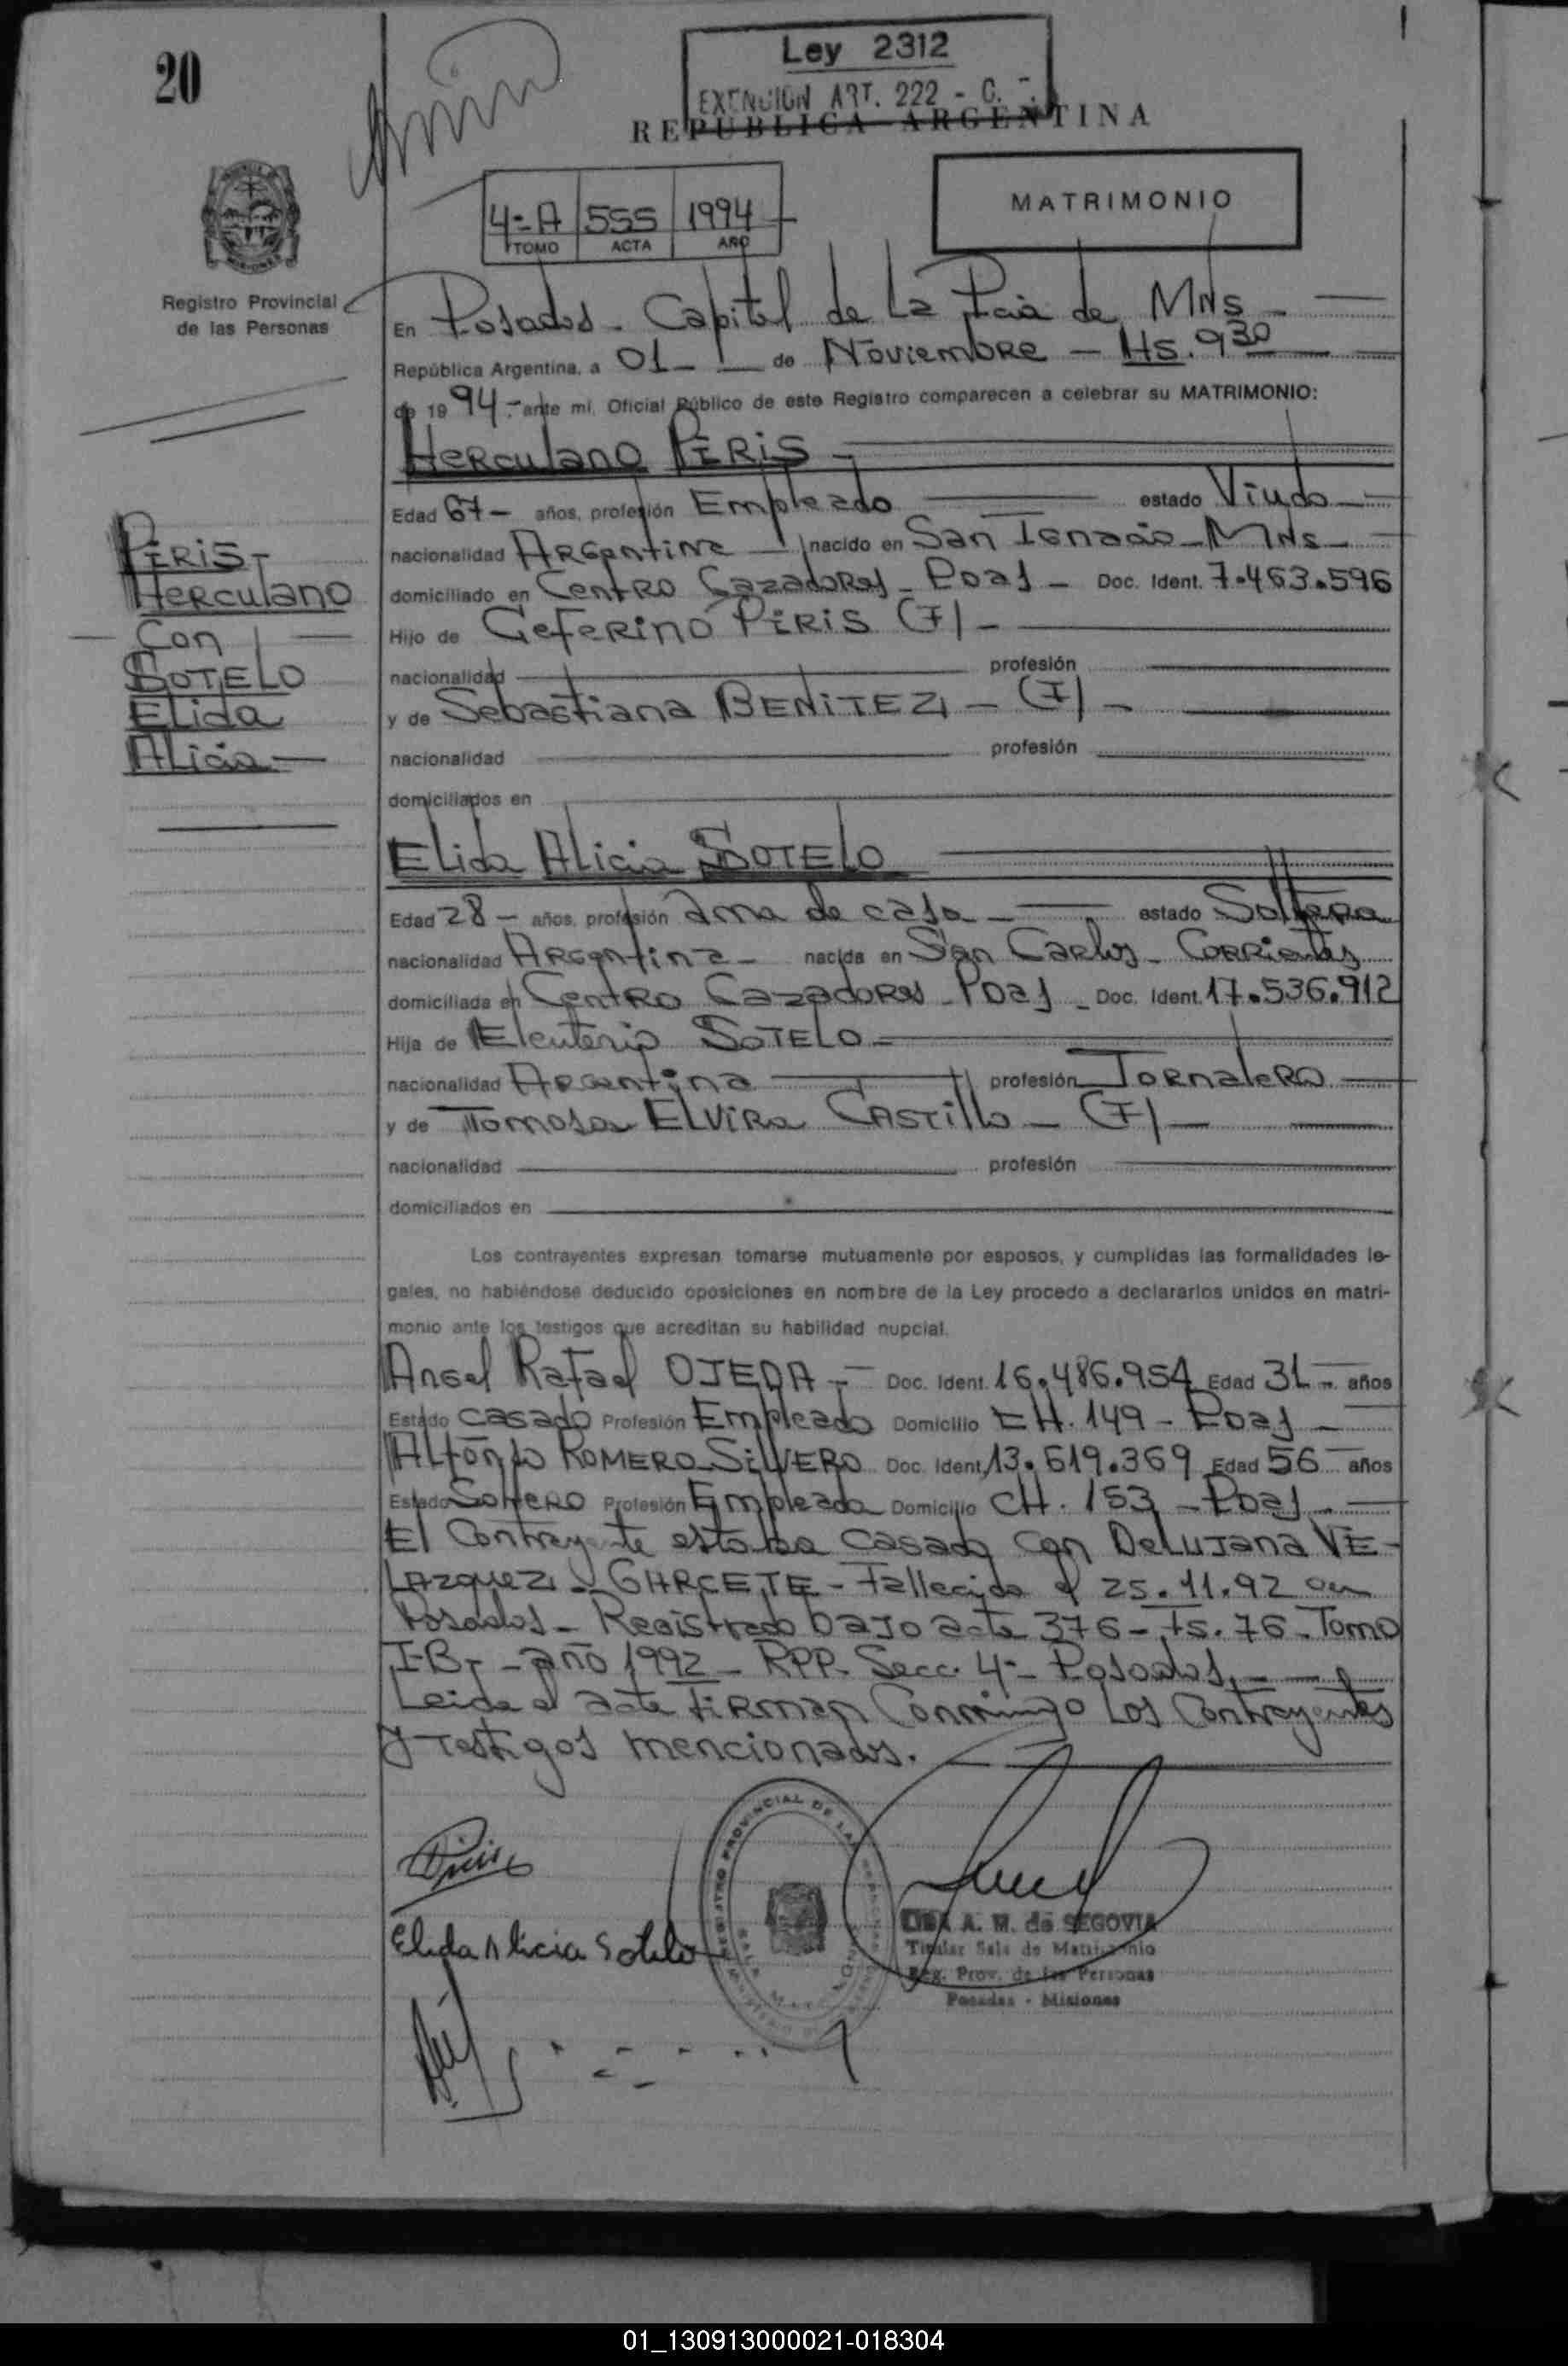 20
Ley 2312
EXENCION ART. 222 - C.
REPUBLICA ARGENTINA
4-A 555 1994
TOMO ACTA AÑO
MATRIMONIO
Registro Provincial
de las Personas
En Posadas - Capital de La Pcia de MNs -
República Argentina, a 01 - de Noviembre - Hs. 9 30
de 19 94.- ante mi, Oficial Público de este Registro comparecen a celebrar su MATRIMONIO:
Herculano PIRIS -
Edad 67 - años, profesión Empleado estado Viudo -
nacionalidad Argentina - nacido en San Ignacio - MNs -
domiciliado en Centro Cazadores - Pdas - Doc. Ident. 7.463.596
Hijo de Ceferino PIRIS (F) -
nacionalidad profesión
y de Sebastiana BENITEZ - (F) -
nacionalidad profesión
domiciliados en
PIRIS -
Herculano
- Con -
SOTELO
Elida
Alicia -
Elida Alicia SOTELO
Edad 28 - años, profesión ama de casa - estado Soltera
nacionalidad Argentina - nacida en San Carlos - Corrientes
domiciliada en Centro Cazadores - Pdas - Doc. Ident. 17.536.912
Hija de Eleuterio SOTELO -
nacionalidad Argentina profesión Jornalero
y de Tomasa ELVIRA CASTILLO - (F) -
nacionalidad profesión
domiciliados en
Los contrayentes expresan tomarse mutuamente por esposos, y cumplidas las formalidades le-
gales, no habiéndose deducido oposiciones en nombre de la Ley procedo a declararlos unidos en matri-
monio ante los testigos que acreditan su habilidad nupcial.
Angel Rafael OJEDA - Doc. Ident. 16.486.954 Edad 31 - años
Estado casado Profesión Empleado Domicilio CH. 149 - Pdas -
Alfonso ROMERO SILVERO Doc. Ident. 13.619.369 Edad 56 años
Estado Soltero Profesión Empleado Domicilio CH. 153 - Pdas -
El Contrayente estaba casado con DeLujana VE-
LAZQUEZ GARCETE - Fallecida el 25.11.92 en
Posadas - Registrado bajo acta 376 - Fs. 76 - Tomo
I-B - año 1992 - RPP. Secc. 4ª - Posadas. -
Leida el acta firman Conmingo Los Contrayentes
y Testigos mencionados.
Piris
Elida Alicia Sotelo
REGISTRO PROVINCIAL DE LAS PERSONAS
A. M. de SEGOVIA
Titular Sala de Matrimonio
Reg. Prov. de las Personas
Posadas - Misiones
01_130913000021-018304